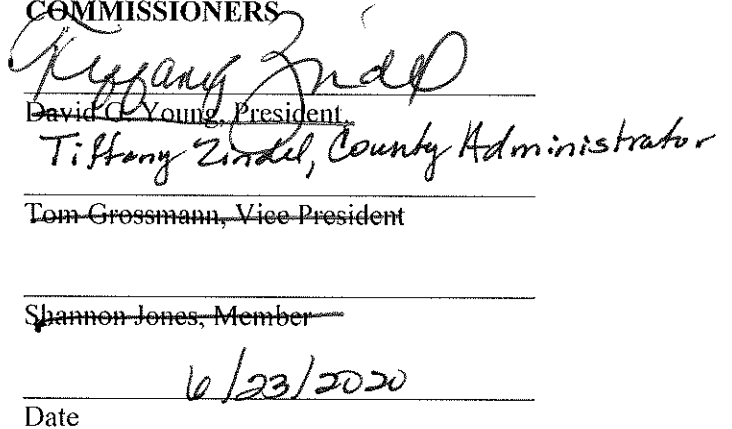 COMMISSIONERS
Tiffany Zindel
David G. Young, President
Tiffany Zindel, County Administrator
Tom Grossmann, Vice President
Shannon Jones, Member
6/23/2020
Date